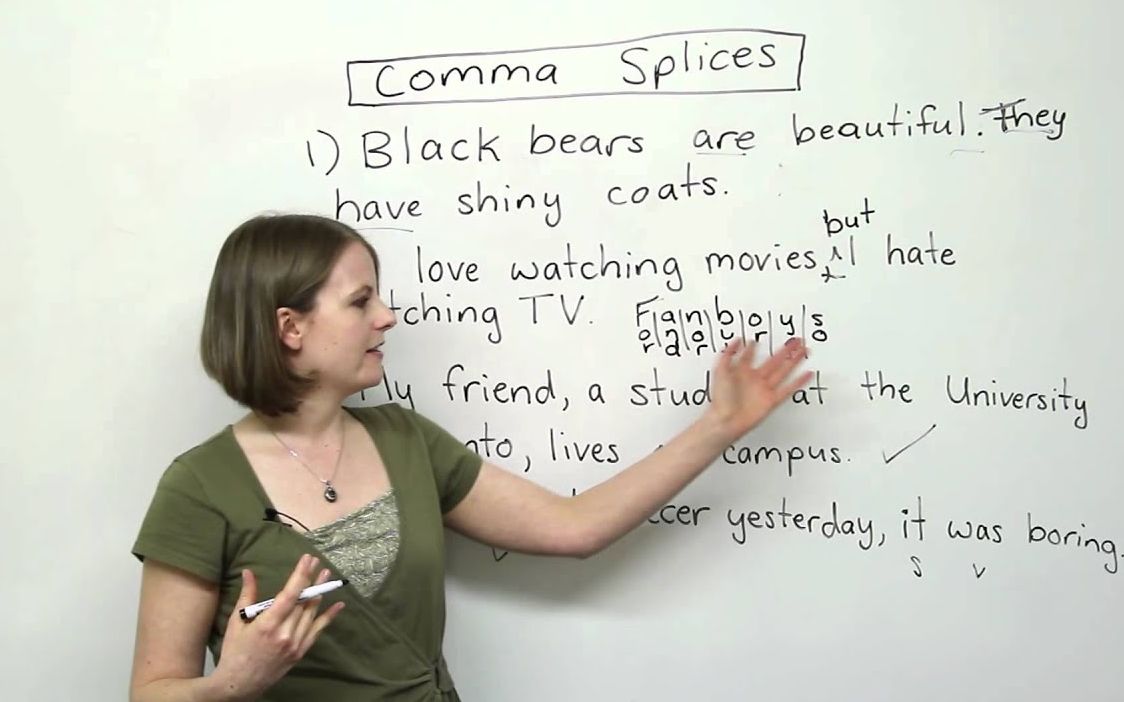 Comma Splices
1) Black bears are beautiful. They
have shiny coats.
but
love watching movies, I hate
tching TV.
Fanboys
friend, a stud at the University
nto, lives campus. ✓
ccer yesterday, it was boring.
s v